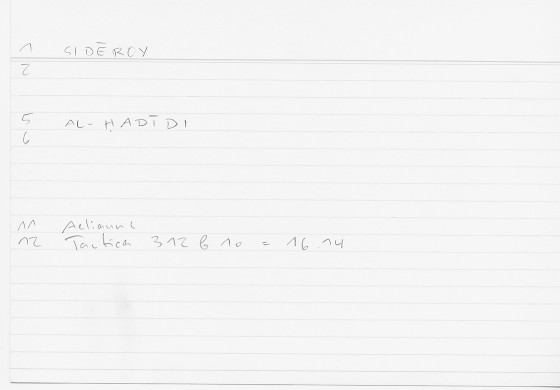 1 SIDĒROY
2
5 AL-ḤADĪDI
6
11 Aelianus
12 Tactica 312 b 10 = 16.14